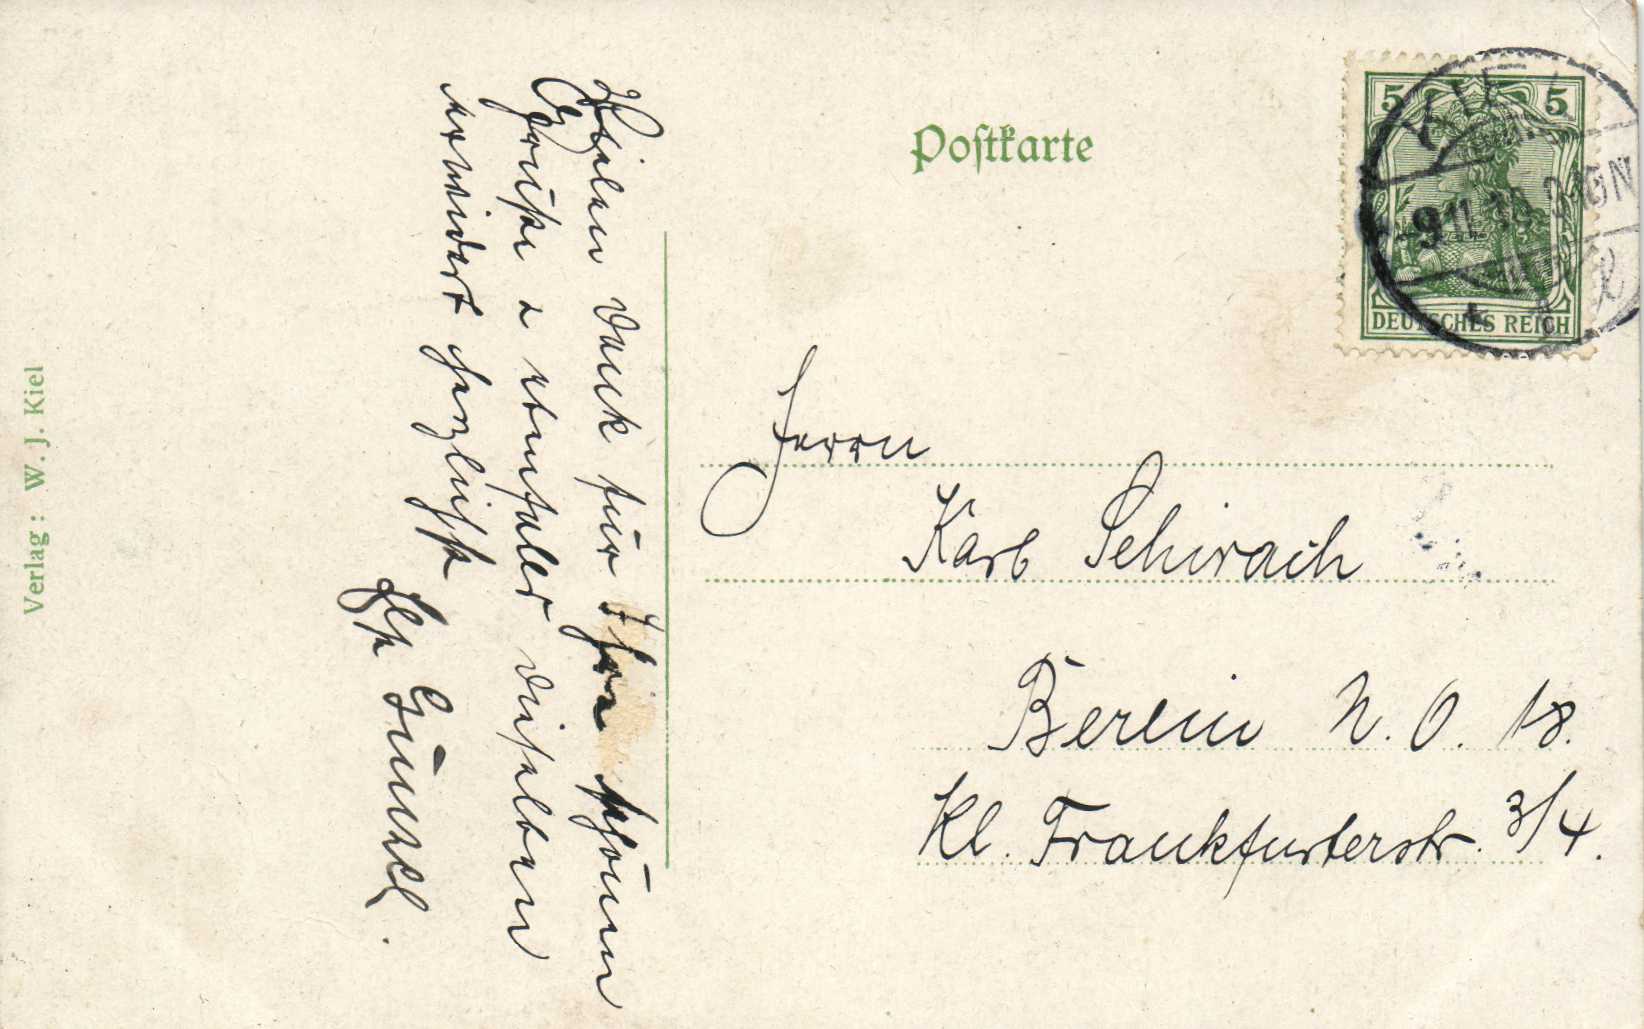 Postkarte
5 5
DEUTSCHES REICH
KIEL
-9.11.
Vielen Dank für Ihre schönen
Grüße u ebenfalls dieselben
erwidert herzlichst
Herrn
Karl Schirach
Berlin N. O. 18.
Kl. Frankfurterstr. 3/4.
Verlag: W. J. Kiel